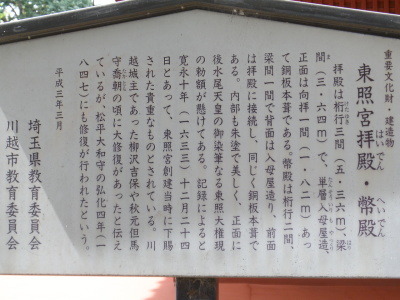 重要文化財・建造物
東照宮拝殿・幣殿
はいでん
へいでん
拝殿は桁行三間(五・三六m)、梁
間(三・六四m)で、単層入母屋造、
正面は向拝一間(一・八二m)あっ
て銅板本葺である。幣殿は桁行二間、
梁間一間で背面は入母屋造り、前面
は拝殿に接続し、同じく銅板本葺で
ある。内部も朱塗で美しく、正面に
後水尾天皇の御染筆なる東照大権現
の勅額が懸けてある。記録によると
寛永十年(一六三三)十二月二十四
日とあって、東照宮創建当時に下賜
された貴重なものとされている。川
越城主であった柳沢吉保や秋元但馬
守喬朝の頃に大修復があったと伝え
ているが、松平大和守の弘化四年(一
八四七)にも修復が行われたという。
平成三年三月
埼玉県教育委員会
川越市教育委員会